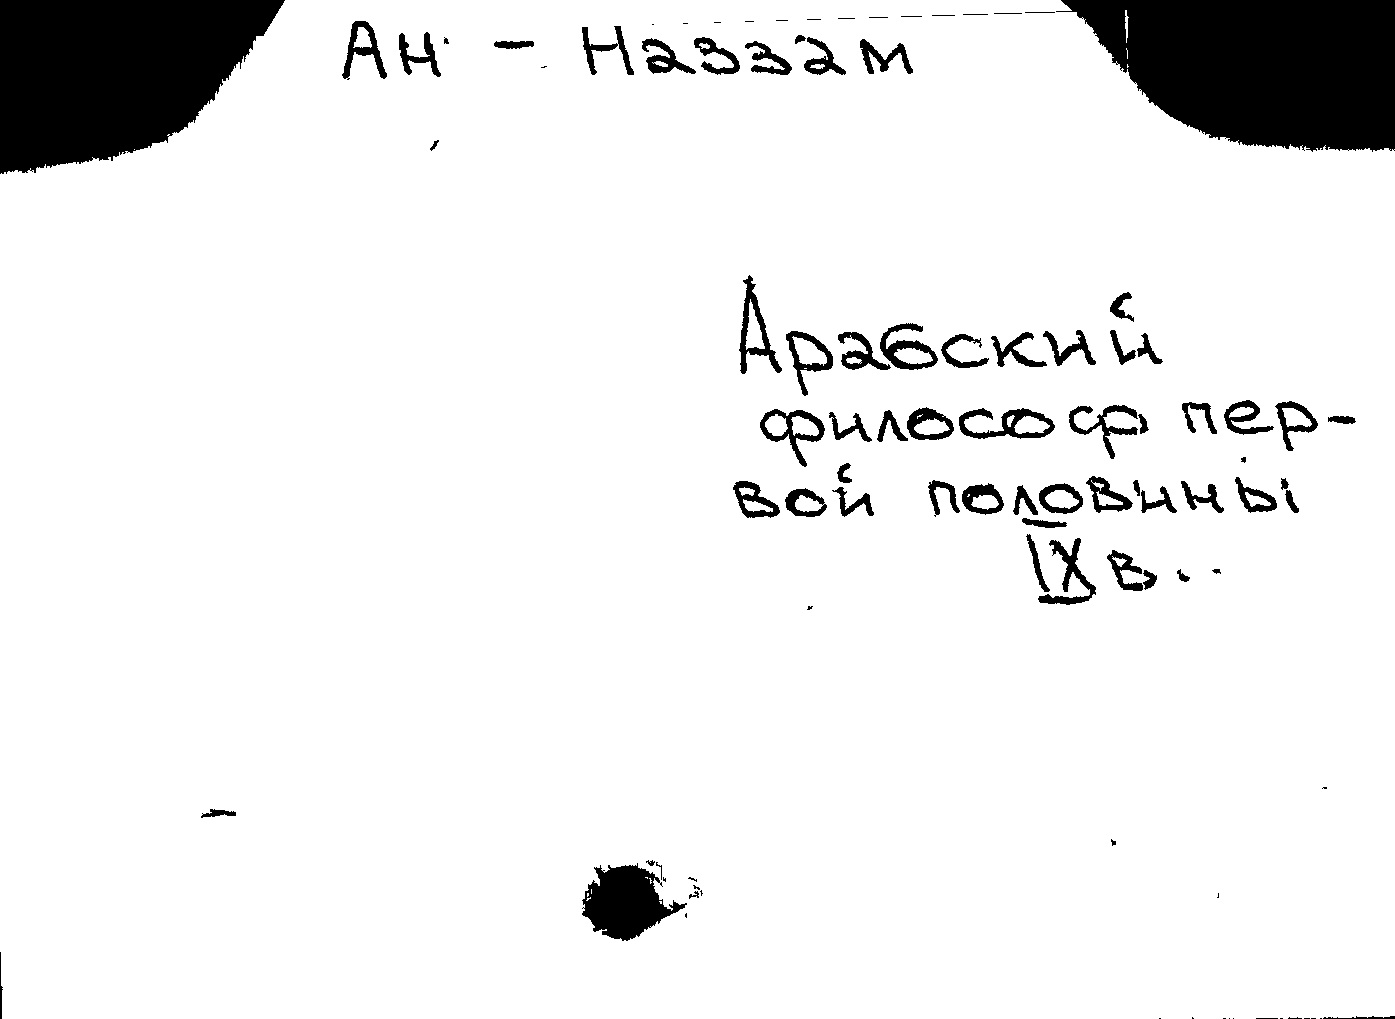 Ан - Наззам
Арабский
философ пер-
вой половины
IX в.